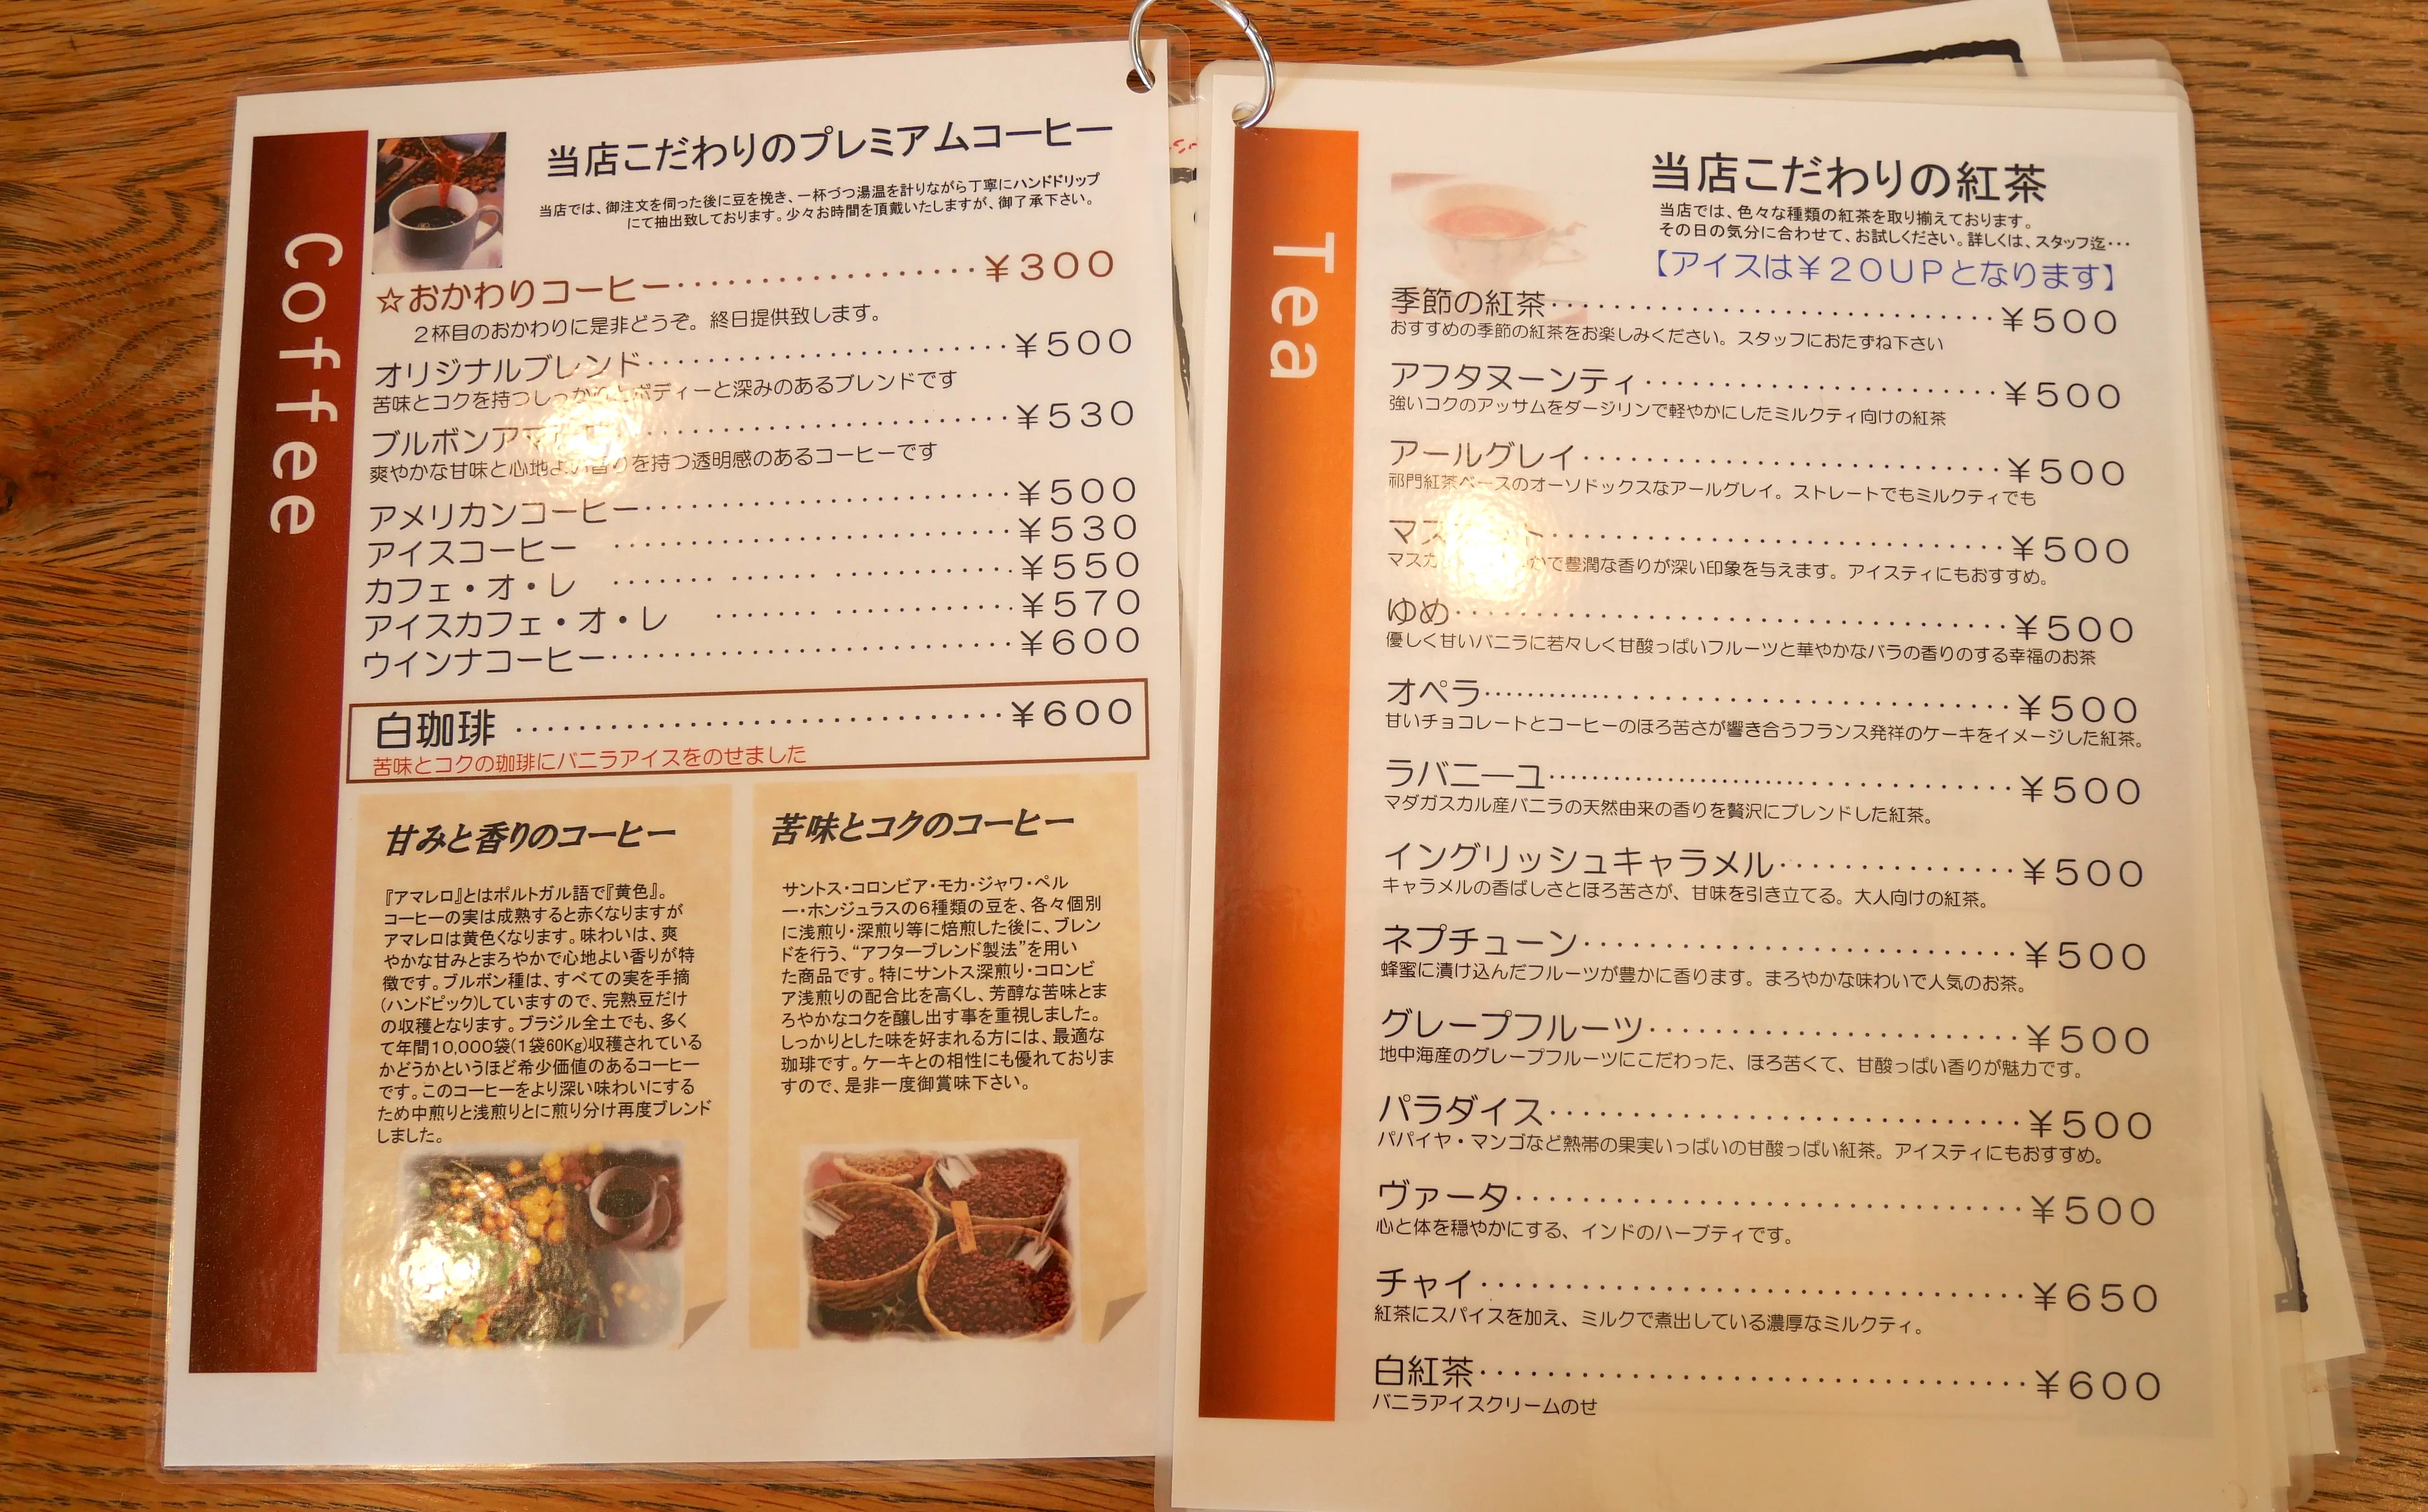 Coffee
当店こだわりのプレミアムコーヒー
当店では、御注文を伺った後に豆を挽き、一杯づつ湯温を計りながら丁寧にハンドドリップ
にて抽出致しております。少々お時間を頂戴いたしますが、御了承下さい。
☆おかわりコーヒー・・・・・・・・・・・・・・・・・・¥300
2杯目のおかわりに是非どうぞ。終日提供致します。
オリジナルブレンド・・・・・・・・・・・・・・・・・・・・・・・¥500
苦味とコクを持つしっかりとボディーと深みのあるブレンドです
ブルボンア・・・・・・・・・・・・・・・・・・・・・・・¥530
爽やかな甘味と心地よい香りを持つ透明感のあるコーヒーです
アメリカンコーヒー・・・・・・・・・・・・・・・・・・・・・・・¥500
アイスコーヒー ・・・・・・・・・・・・・・・・・・・・・・・・・¥530
カフェ・オ・レ ・・・・・・・・・・・・・・・・・・・・・・・・・¥550
アイスカフェ・オ・レ ・・・・・・・・・・・・・・・・・・・¥570
ウインナコーヒー・・・・・・・・・・・・・・・・・・・・・・・・・¥600
白珈琲 ・・・・・・・・・・・・・・・・・・・・・・・・・・・・・・¥600
苦味とコクの珈琲にバニラアイスをのせました
甘みと香りのコーヒー
『アマレロ』とはポルトガル語で『黄色』。
コーヒーの実は成熟すると赤くなりますが
アマレロは黄色くなります。味わいは、爽
やかな甘みとまろやかで心地よい香りが特
徴です。ブルボン種は、すべての実を手摘
(ハンドピック)していますので、完熟豆だけ
の収穫となります。ブラジル全土でも、多く
て年間10,000袋(1袋60Kg)収穫されている
かどうかというほど希少価値のあるコーヒー
です。このコーヒーをより深い味わいにする
ため中煎りと浅煎りとに煎り分け再度ブレンド
しました。
苦味とコクのコーヒー
サントス・コロンビア・モカ・ジャワ・ペル
ー・ホンジュラスの6種類の豆を、各々個別
に浅煎り・深煎り等に焙煎した後に、ブレン
ドを行う、“アフターブレンド製法”を用い
た商品です。特にサントス深煎り・コロンビ
ア浅煎りの配合比を高くし、芳醇な苦味とま
ろやかなコクを醸し出す事を重視しました。
しっかりとした味を好まれる方には、最適な
珈琲です。ケーキとの相性にも優れておりま
すので、是非一度御賞味下さい。
Tea
当店こだわりの紅茶
当店では、色々な種類の紅茶を取り揃えております。
その日の気分に合わせて、お試しください。詳しくは、スタッフ迄・・・
【アイスは¥20UPとなります】
季節の紅茶・・・・・・・・・・・・・・・・・・・・・・・・・・・¥500
おすすめの季節の紅茶をお楽しみください。スタッフにおたずね下さい
アフタヌーンティ・・・・・・・・・・・・・・・・・・・・・・¥500
強いコクのアッサムをダージリンで軽やかにしたミルクティ向けの紅茶
アールグレイ・・・・・・・・・・・・・・・・・・・・・・・・・・¥500
祁門紅茶ベースのオーソドックスなアールグレイ。ストレートでもミルクティでも
マス ト・・・・・・・・・・・・・・・・・・・・・・・・・・・・¥500
マスカ かで豊潤な香りが深い印象を与えます。アイスティにもおすすめ。
ゆめ・・・・・・・・・・・・・・・・・・・・・・・・・・・・・・・・・・¥500
優しく甘いバニラに若々しく甘酸っぱいフルーツと華やかなバラの香りのする幸福のお茶
オペラ・・・・・・・・・・・・・・・・・・・・・・・・・・・・・・・・¥500
甘いチョコレートとコーヒーのほろ苦さが響き合うフランス発祥のケーキをイメージした紅茶。
ラバニーユ・・・・・・・・・・・・・・・・・・・・・・・・・・・・¥500
マダガスカル産バニラの天然由来の香りを贅沢にブレンドした紅茶。
イングリッシュキャラメル・・・・・・・・・・・・・・・¥500
キャラメルの香ばしさとほろ苦さが、甘味を引き立てる。大人向けの紅茶。
ネプチューン・・・・・・・・・・・・・・・・・・・・・・・・・・・¥500
蜂蜜に漬け込んだフルーツが豊かに香ります。まろやかな味わいで人気のお茶。
グレープフルーツ・・・・・・・・・・・・・・・・・・・・・・・¥500
地中海産のグレープフルーツにこだわった、ほろ苦くて、甘酸っぱい香りが魅力です。
パラダイス・・・・・・・・・・・・・・・・・・・・・・・・・・・・・¥500
パパイヤ・マンゴなど熱帯の果実いっぱいの甘酸っぱい紅茶。アイスティにもおすすめ。
ヴァータ・・・・・・・・・・・・・・・・・・・・・・・・・・・・・・・¥500
心と体を穏やかにする、インドのハーブティです。
チャイ・・・・・・・・・・・・・・・・・・・・・・・・・・・・・・・・・¥650
紅茶にスパイスを加え、ミルクで煮出している濃厚なミルクティ。
白紅茶・・・・・・・・・・・・・・・・・・・・・・・・・・・・・・・・・¥600
バニラアイスクリームのせ